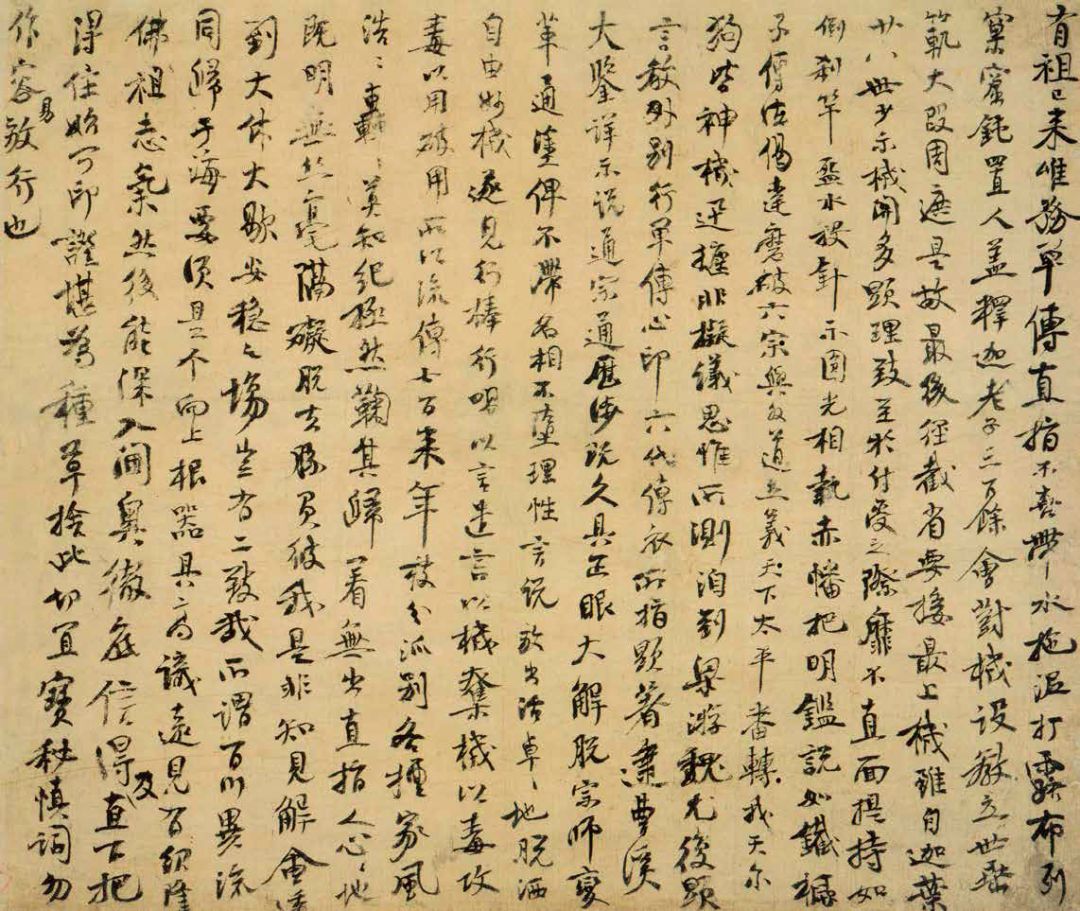 有祖已来唯務單傳直指不喜帶水拖泥打露布列
窠窟鈍置人盖釋迦老子三百餘會對機設教立世垂
範大段周遮是故最後徑截省要接最上機雖自迦葉
廿八世少示機關多顯理致至於付受之際靡不直面提持如
倒刹竿盋水投針示圓光相執赤幡把明鑑說如鐵橛
子傳法偈達磨破六宗與外道立義天下太平番轉我天尔
狗皆神機迅捷非擬議思惟所測洎到梁游魏尤復顯
言教外別行單傳心印六代傳衣所指顯著逮曹溪
大鑒詳示說通宗通歷涉既久具正眼大解脫宗師變
革通塗俾不滯名相不墮理性言說放出活卓〻地脫洒
自由妙機遂見行棒行喝以言遣言以機奪機以毒攻
毒以用破用所以流傳七百来年枝分派別各擅家風
浩〻轟〻莫知紀極然鞠其歸着無出直指人心〻地
既明無丝毫隔礙脫去勝負彼我是非知見解會透
到大休大歇安穏之場豈有二致哉所謂百川異流
同歸于海要須是个向上根器具高識遠見有紹隆
佛祖志氣然後能深入閫奧徹底信得及直下把
得住始可印證堪為種草捨此切宜寶秘慎詞勿
作容易放行也